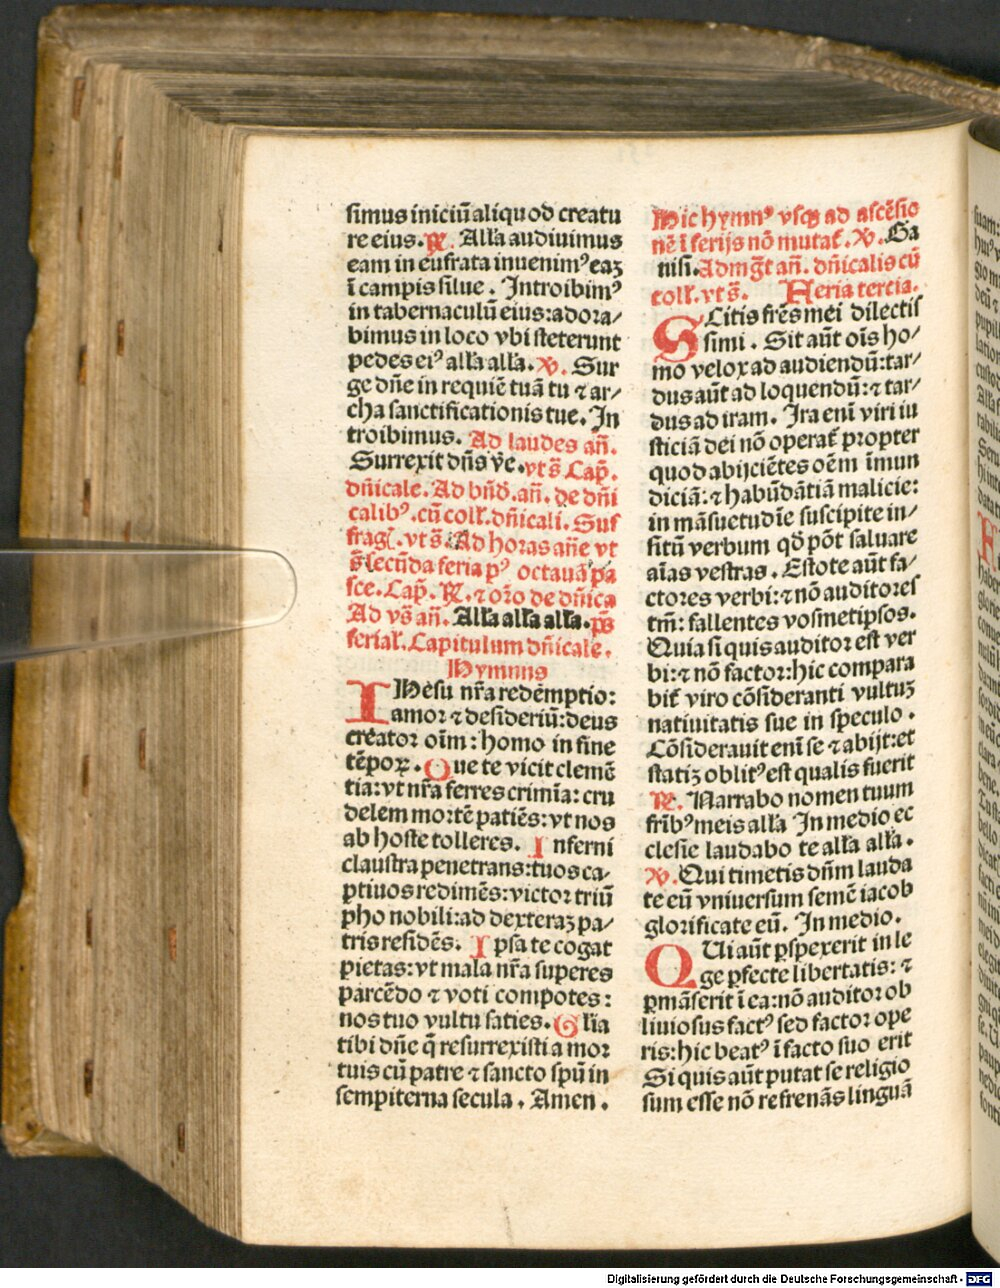 simus iniciū aliquod creatu
re eius. ꝶ. Alla audiuimus
eam in eufrata inuenimꝰ eaꝫ
ī campis silue . Introibimꝰ
in tabernaculū eius: adora⸗
bimus in loco vbi steterunt
pedes eiꝰ alla alla. ℣. Sur
ge dn̄e in requiē tuā tu ⁊ ar⸗
cha sanctificationis tue. In
troibimus. Ad laudes an̄.
Surrexit dn̄s ve. vt s̄ Cap̄.
dn̄icale. Ad bn̄d. an̄. de dn̄i
calibꝰ. cū coll. dn̄icali. Suf
frag. vt s̄. Ad horas an̄e vt
s̄ secūda feria pꝰ octauā pa
sce. Cap̄. ꝶ. ⁊ or̄o de dn̄ica
Ad vs̄ an̄. Alla alla alla. ps̄
ferial. Capitulum dn̄icale.
Hymnus
IHesu nr̄a redēmptio:
amor ⁊ desideriū: deus
creator oīm: homo in fine
tēpoꝝ. Que te vicit clemē
tia: vt nr̄a ferres crimīa: cru
delem mortē patiēs: vt nos
ab hoste tolleres. Inferni
claustra penetrans: tuos ca⸗
ptiuos redimēs: victor triū
pho nobili: ad dexteraꝫ pa⸗
tris residēs. Ipsa te cogat
pietas: vt mala nr̄a superes
parcēdo ⁊ voti compotes :
nos tuo vultu saties. Glia
tibi dn̄e q̄ resurrexisti a mor
tuis cū patre ⁊ sancto spū in
sempiterna secula . Amen .
Hic hymnꝰ vsqꝫ ad ascēsio
nē ī ferijs nō mutat̄. ℣. Ga
uisi. Ad mg̅t an̄. dn̄icalis cū
coll. vt s̄. Feria tercia.
SCitis frēs mei dilectis
simi . Sit aūt oīs ho⸗
mo velox ad audiendū: tar⸗
dus aūt ad loquendū: ⁊ tar⸗
dus ad iram. Ira enī viri iu
sticiā dei nō operat̄ propter
quod abijciētes oēm īmun
diciā: ⁊ habūdātiā malicie:
in māsuetudīe suscipite in⸗
sitū verbum qd̄ pōt saluare
aīas vestras . Estote aūt fa⸗
ctores verbi: ⁊ nō auditores
tm̄: fallentes vosmetipsos.
Quia si quis auditor est ver
bi: ⁊ nō factor: hic compara
bit̄ viro cōsideranti vultuꝫ
natiuitatis sue in speculo .
Cōsiderauit enī se ⁊ abijt: et
statiꝫ oblitꝰ est qualis fuerit
ꝶ. Narrabo nomen tuum
fr̄ibꝰ meis alla In medio ec
clesie laudabo te alla alla .
℣. Qui timetis dn̄m lauda
te eū vniuersum semē iacob
glorificate eū. In medio.
QUi aūt ꝑspexerit in le
ge ꝑfecte libertatis: ⁊
ꝑmāserit ī ea: nō auditor ob
liuiosus factꝰ sed factor ope
ris: hic beatꝰ ī facto suo erit
Si quis aūt putat se religio
sum esse nō refrenās linguā
Digitalisierung gefördert durch die Deutsche Forschungsgemeinschaft - DFG